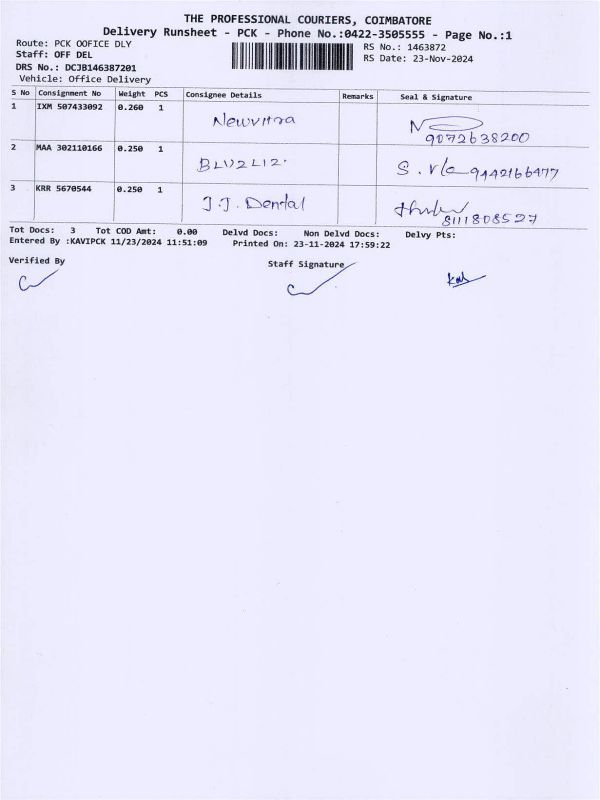 THE PROFESSIONAL COURIERS, COIMBATORE
Delivery Runsheet - PCK - Phone No.:0422-3505555 - Page No.:1
Route: PCK OOFICE DLY
Staff: OFF DEL
DRS No.: DCJB146387201
Vehicle: Office Delivery
RS No.: 1463872
RS Date: 23-Nov-2024
S No Consignment No Weight PCS Consignee Details Remarks Seal & Signature
1 IXM 507433092 0.260 1 Newvitra
9072638200
2 MAA 302110166 0.250 1 9442166477
3 KRR 5670544 0.250 1 J.J. Dental
8111808527
Tot Docs: 3 Tot COD Amt: 0.00 Delvd Docs: Non Delvd Docs: Delvy Pts:
Entered By :KAVIPCK 11/23/2024 11:51:09 Printed On: 23-11-2024 17:59:22
Verified By Staff Signature